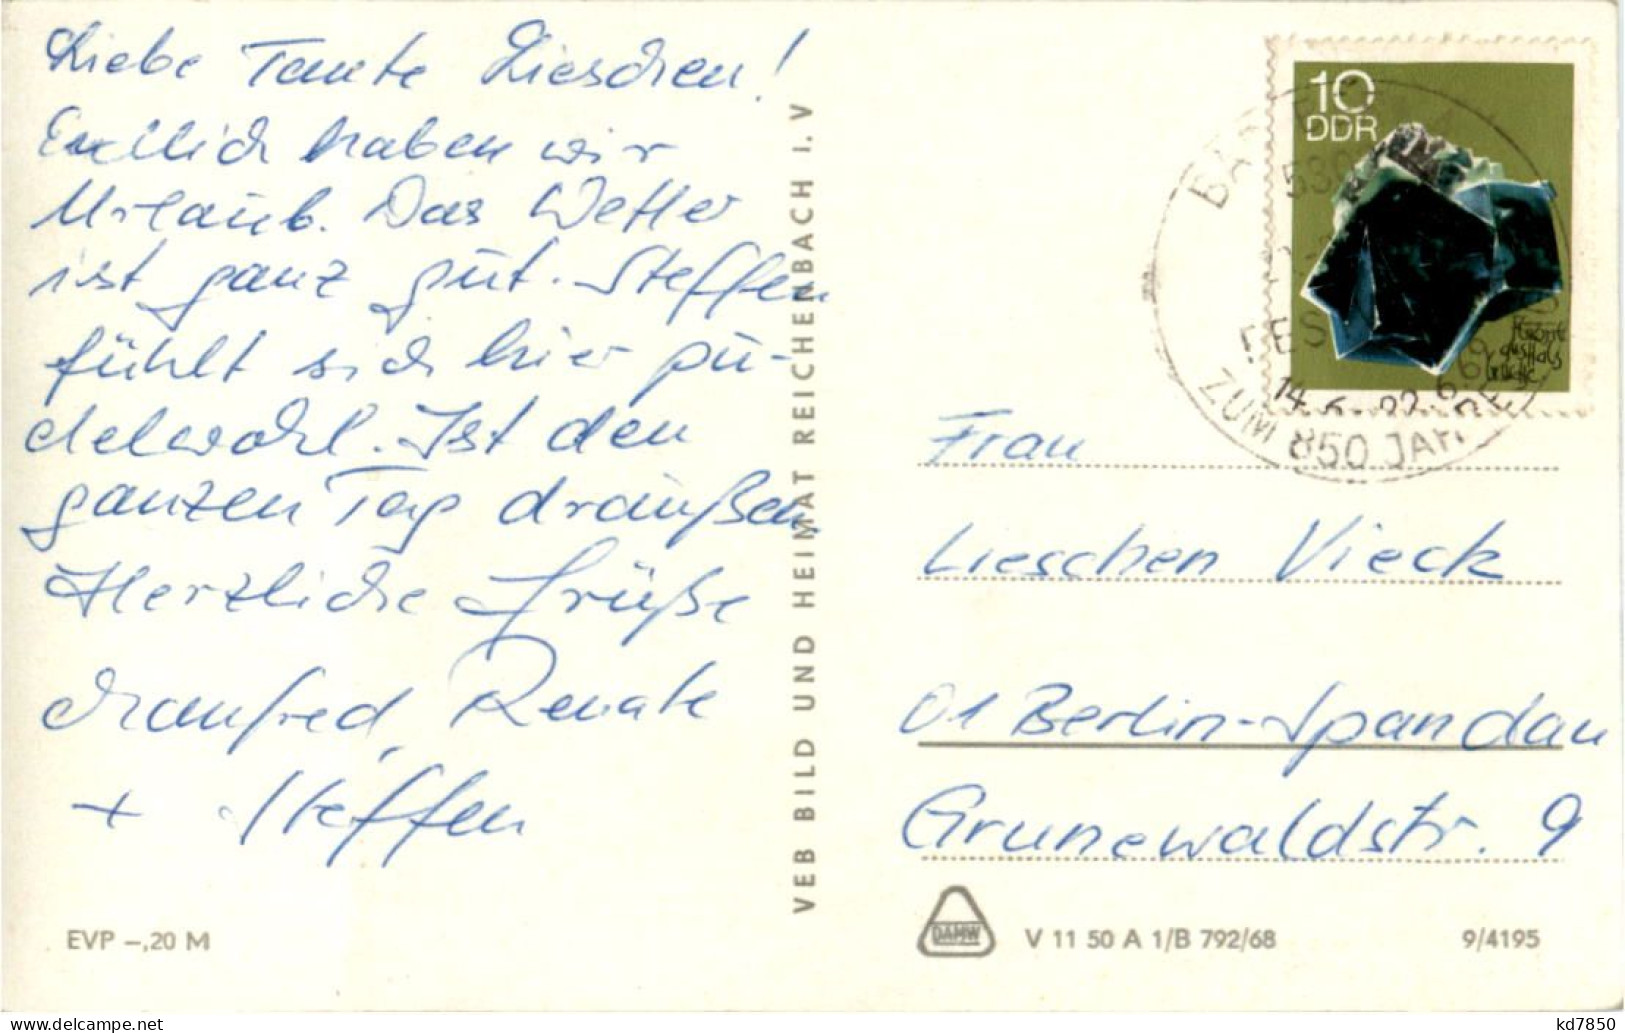 Liebe Tante Lieschen!
Endlich haben wir
Urlaub. Das Wetter
ist ganz gut. Steffen
fühlt sich hier pu-
delwohl. Ist den
ganzen Tag draußen.
Herzliche Grüße
Manfred, Renate
+ Steffen
EVP -,20 M
VEB BILD UND HEIMAT REICHENBACH I. V
10
DDR
Fluorit
aus Hals
brücke
530
FES
14.6.-22.6.69
ZUM 850 JAHR
Frau
Lieschen Vieck
01 Berlin-Spandau
Grunewaldstr. 9
DAMW
V 11 50 A 1/B 792/68
9/4195
kd7850